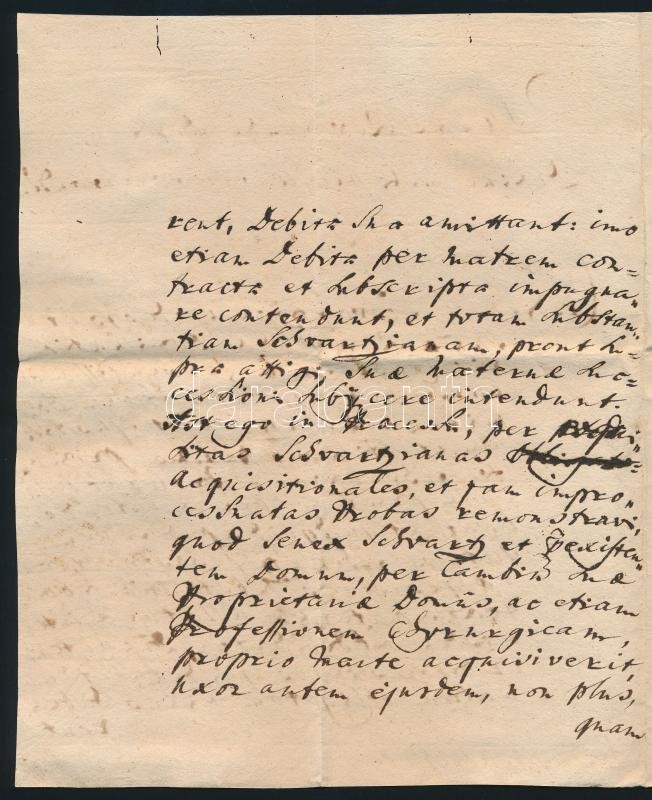 rent, Debita sua amittant: imo
etiam Debita per Matrem con=
tracta et subscripta impugna"
re contendunt, et totam substan"
tiam Schvartzianam, prout su-
pra attigi, suæ Maternæ suc-
cessioni subjicere intendunt
Ast ego in Processu, per
sitas Schvartzianas
Acquisitionales, et jam impro"
cessuatas Probas remonstravi,
quod senex Schvartz et existen"
tem Domum, per Cambium suæ
Proprietariæ Domûs, ac etiam
Professionem Chyrurgicam,
proprio Marte acquisiverit,
uxor autem ejusdem, non plus,
quam
darabanth